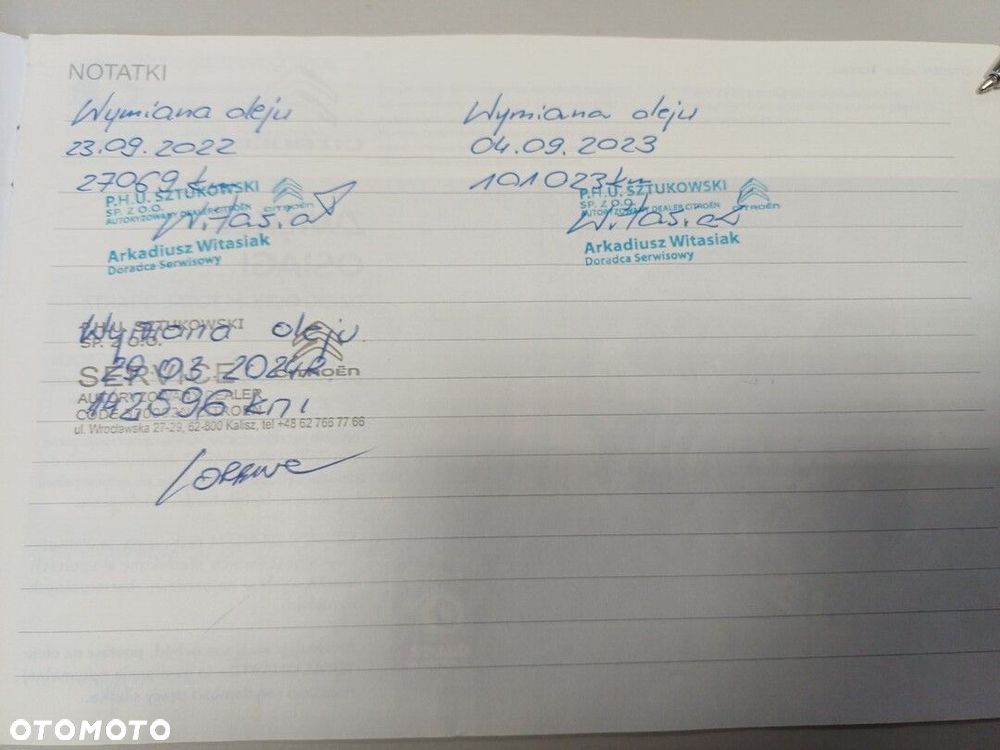 NOTATKI
Wymiana oleju
23.09.2022
27069 km
P.H.U. SZTUKOWSKI
SP. Z O.O.
AUTORYZOWANY DEALER CITROËN
CITROËN
Arkadiusz Witasiak
Doradca Serwisowy
Wymiana oleju
04.09.2023
101023 km
P.H.U. SZTUKOWSKI
SP. Z O.O.
AUTORYZOWANY DEALER CITROËN
CITROËN
Arkadiusz Witasiak
Doradca Serwisowy
Wymiana oleju
29.03.2024R
142596 km
P.H.U. SZTUKOWSKI
SP. Z O.O.
SERVICE CITROËN
AUTORYZOWANY DEALER
ul. Wrocławska 27-29, 62-800 Kalisz, tel +48 62 766 77 66
OTOMOTO